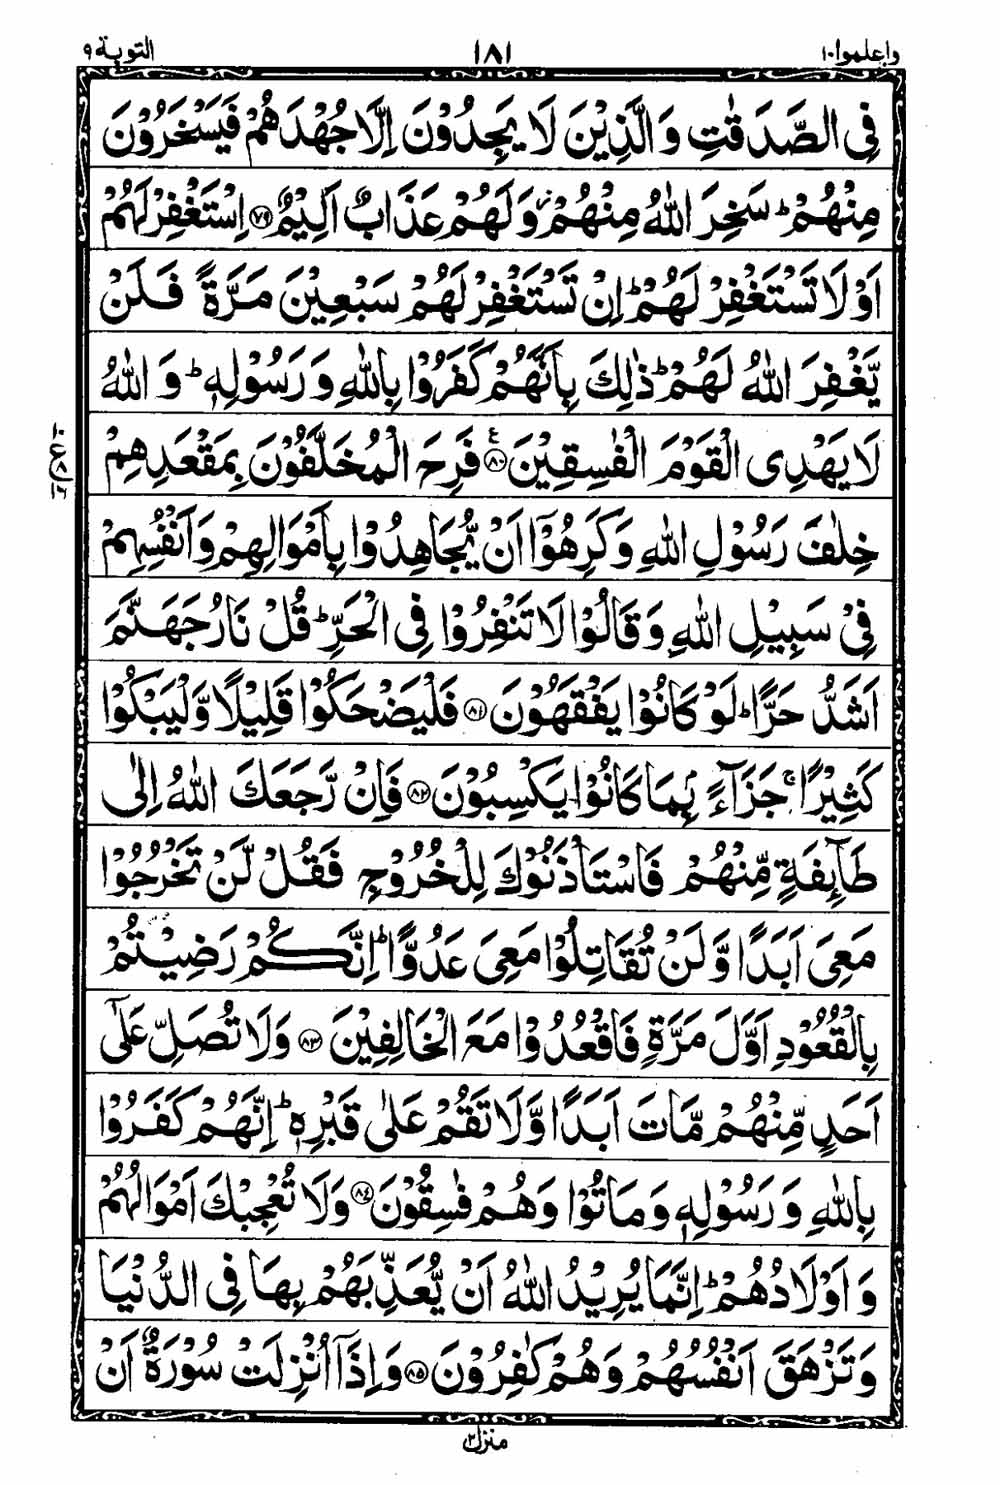 واعلموا ١٠ ١٨١ التوبة ٩
فِی الصَّدَقٰتِ وَالَّذِیْنَ لَا یَجِدُوْنَ اِلَّا جُهْدَهُمْ فَیَسْخَرُوْنَ
مِنْهُمْ ؕ سَخِرَ اللّٰهُ مِنْهُمْ ؗ وَلَهُمْ عَذَابٌ اَلِیْمٌ ﴿٧٩﴾ اِسْتَغْفِرْ لَهُمْ
اَوْ لَا تَسْتَغْفِرْ لَهُمْ ؕ اِنْ تَسْتَغْفِرْ لَهُمْ سَبْعِیْنَ مَرَّةً فَلَنْ
یَّغْفِرَ اللّٰهُ لَهُمْ ؕ ذٰلِكَ بِاَنَّهُمْ كَفَرُوْا بِاللّٰهِ وَرَسُوْلِهٖ ؕ وَاللّٰهُ
لَا یَهْدِی الْقَوْمَ الْفٰسِقِیْنَ ﴿٨٠﴾ ع فَرِحَ الْمُخَلَّفُوْنَ بِمَقْعَدِهِمْ
خِلٰفَ رَسُوْلِ اللّٰهِ وَكَرِهُوْۤا اَنْ یُّجَاهِدُوْا بِاَمْوَالِهِمْ وَاَنْفُسِهِمْ
فِیْ سَبِیْلِ اللّٰهِ وَقَالُوْا لَا تَنْفِرُوْا فِی الْحَرِّ ؕ قُلْ نَارُ جَهَنَّمَ
اَشَدُّ حَرًّا ؕ لَوْ كَانُوْا یَفْقَهُوْنَ ﴿٨١﴾ فَلْیَضْحَكُوْا قَلِیْلًا وَّلْیَبْكُوْا
كَثِیْرًا ۚ جَزَآءًۢ بِمَا كَانُوْا یَكْسِبُوْنَ ﴿٨٢﴾ فَاِنْ رَّجَعَكَ اللّٰهُ اِلٰی
طَآىِٕفَةٍ مِّنْهُمْ فَاسْتَاْذَنُوْكَ لِلْخُرُوْجِ فَقُلْ لَّنْ تَخْرُجُوْا
مَعِیَ اَبَدًا وَّلَنْ تُقَاتِلُوْا مَعِیَ عَدُوًّا ؕ اِنَّكُمْ رَضِیْتُمْ
بِالْقُعُوْدِ اَوَّلَ مَرَّةٍ فَاقْعُدُوْا مَعَ الْخَالِفِیْنَ ﴿٨٣﴾ وَلَا تُصَلِّ عَلٰۤی
اَحَدٍ مِّنْهُمْ مَّاتَ اَبَدًا وَّلَا تَقُمْ عَلٰی قَبْرِهٖ ؕ اِنَّهُمْ كَفَرُوْا
بِاللّٰهِ وَرَسُوْلِهٖ وَمَاتُوْا وَهُمْ فٰسِقُوْنَ ﴿٨٤﴾ وَلَا تُعْجِبْكَ اَمْوَالُهُمْ
وَاَوْلَادُهُمْ ؕ اِنَّمَا یُرِیْدُ اللّٰهُ اَنْ یُّعَذِّبَهُمْ بِهَا فِی الدُّنْیَا
وَتَزْهَقَ اَنْفُسُهُمْ وَهُمْ كٰفِرُوْنَ ﴿٨٥﴾ وَاِذَاۤ اُنْزِلَتْ سُوْرَةٌ اَنْ
منزل ٢